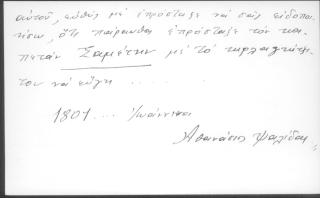 αὐτοῦ, εὐθὺς μὲ ἐπρόσταξε νὰ σᾶς εἰδοποι-
ήσω, ὅτι παίρωνθας ἐπρόσταξε τὸν κα-
πετὰν Σαμέτην μὲ τὸ
του νὰ εὔγη ......
1801 ... Ἰωάννινα
Ἀθανάσιος Ψαλίδας